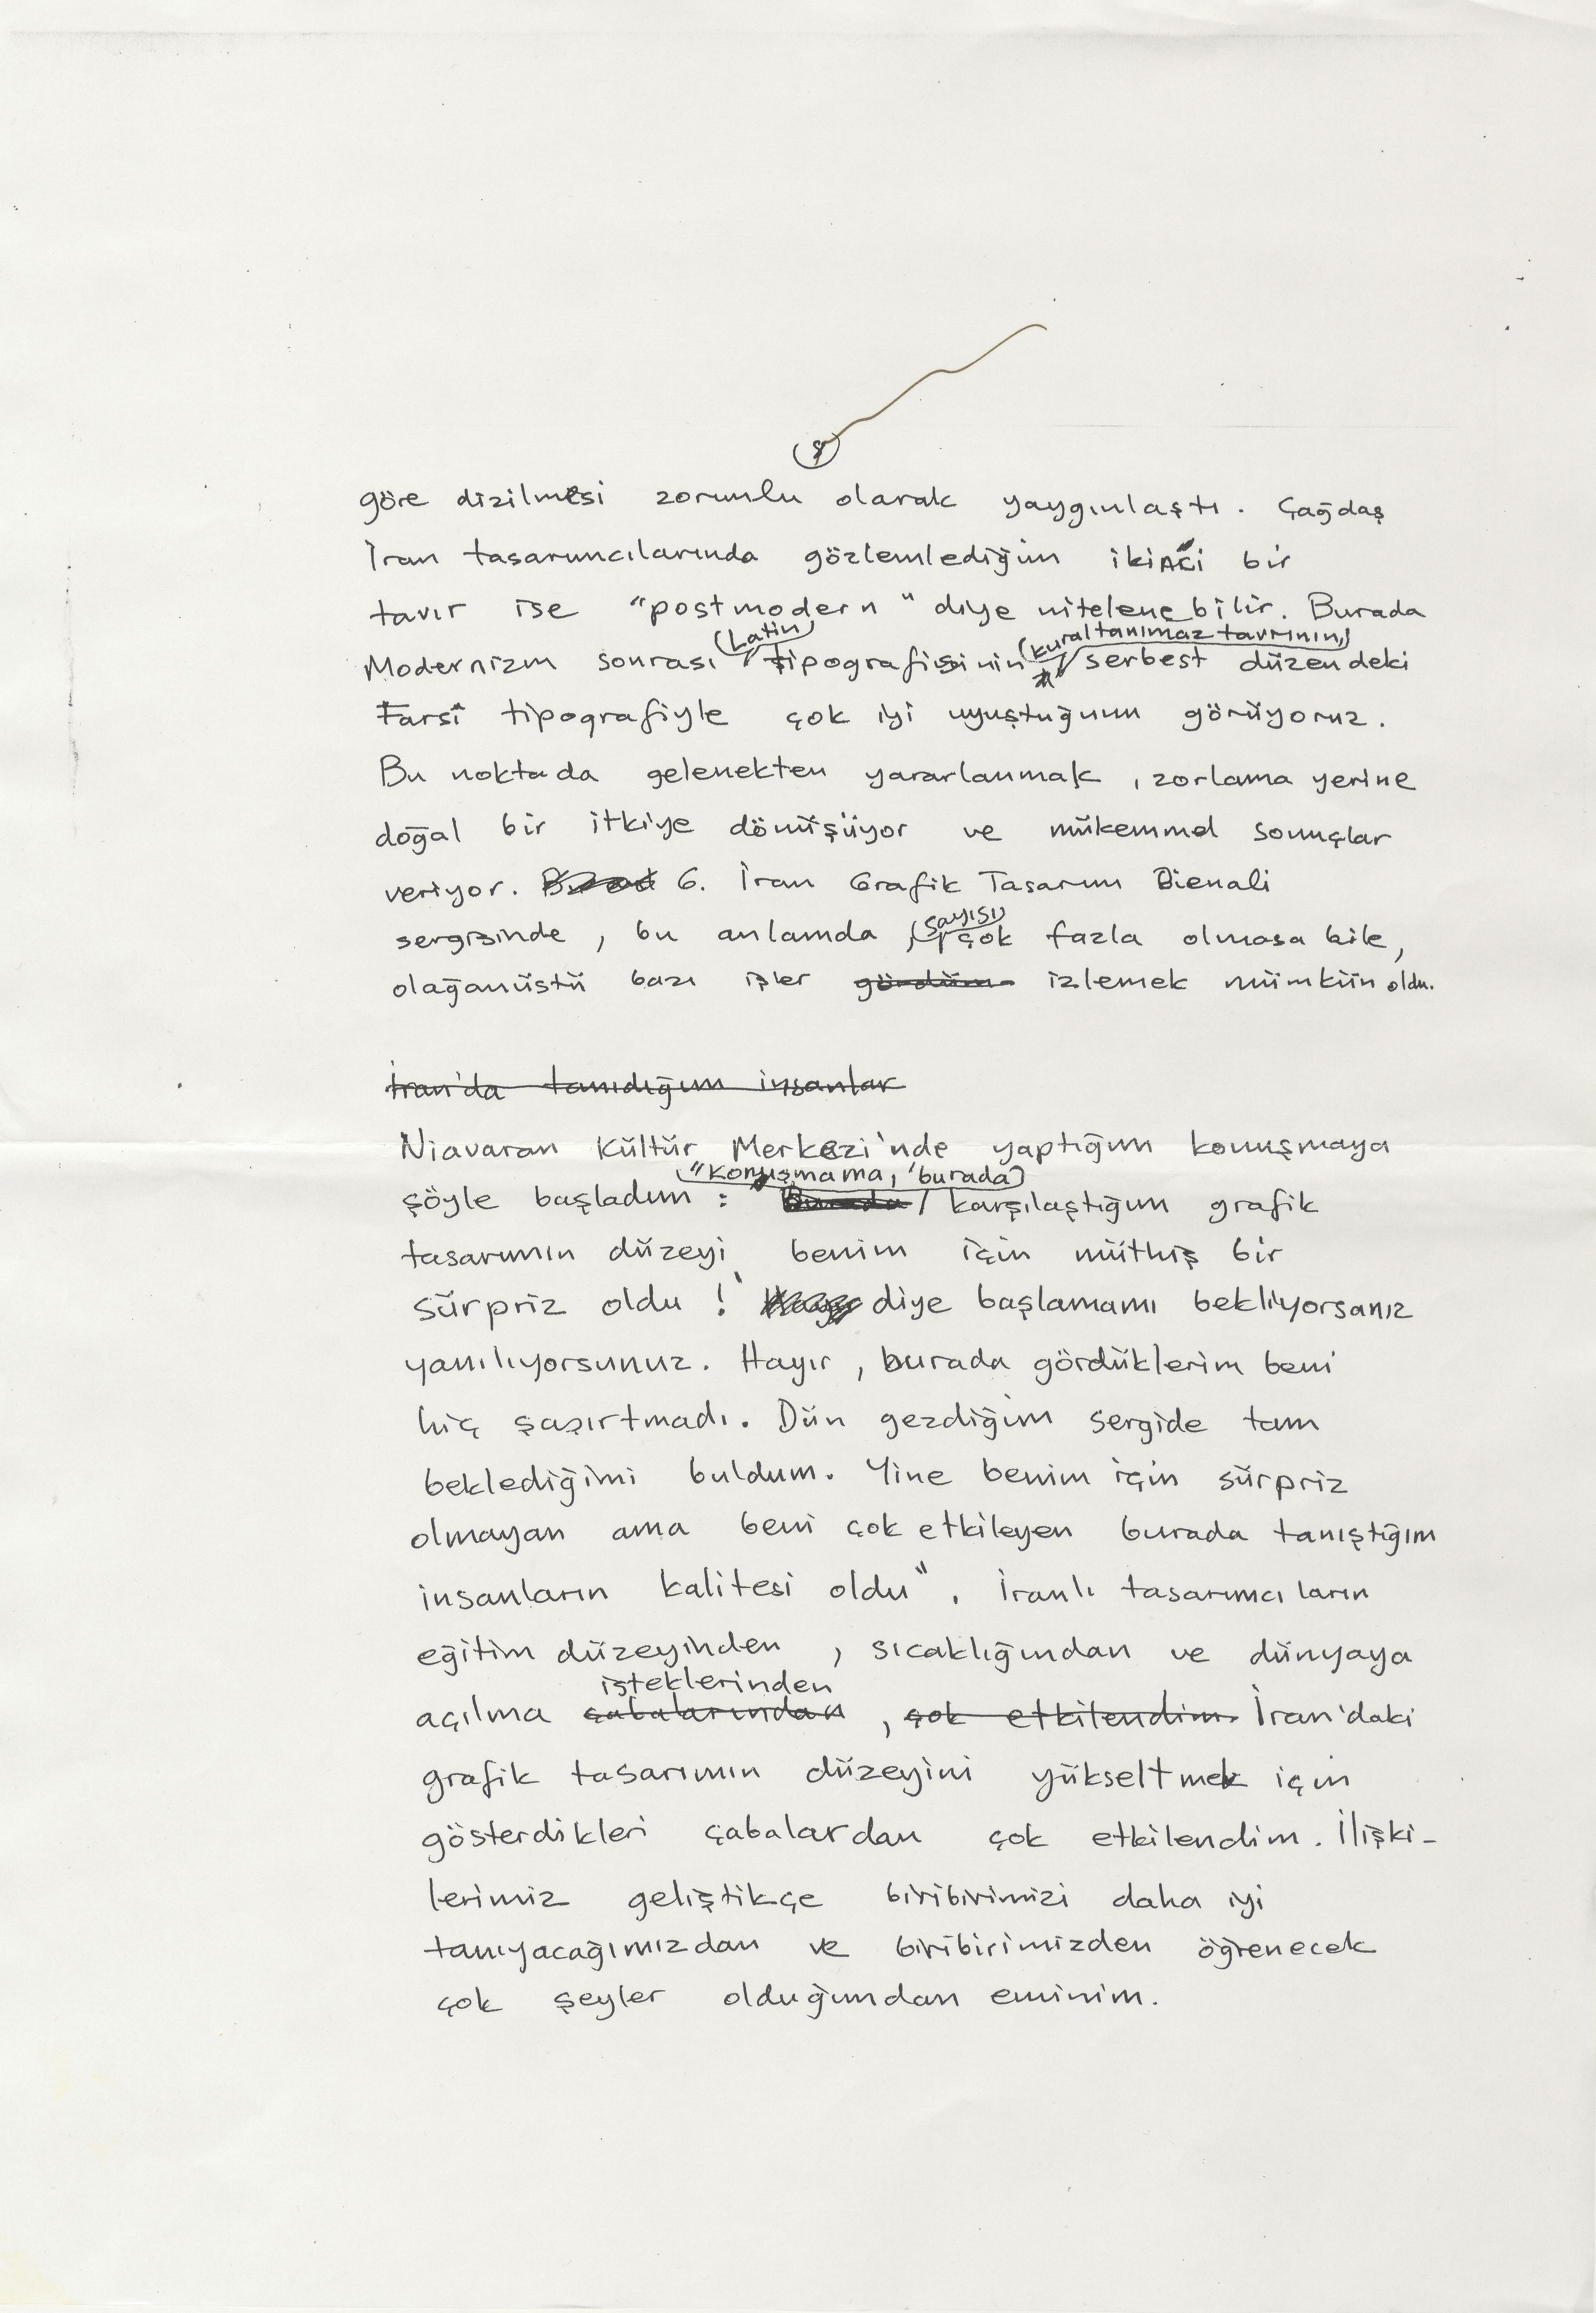 8
göre dizilmesi zorunlu olarak yaygınlaştı. Çağdaş
İran tasarımcılarında gözlemlediğim ikinci bir
tavır ise "postmodern" diye nitelenebilir. Burada
Modernizm sonrası (Latin) tipografisinin (kural tanımaz tavrının,) serbest düzendeki
Farsî tipografiyle çok iyi uyuştuğunu görüyoruz.
Bu noktada gelenekten yararlanmak, zorlama yerine
doğal bir itkiye dönüşüyor ve mükemmel sonuçlar
veriyor. 6. İran Grafik Tasarım Bienali
sergisinde, bu anlamda, (sayısı) çok fazla olmasa bile,
olağanüstü bazı işler gördüm izlemek mümkün oldu.
İran'da tanıdığım insanlar
Niavaran Kültür Merkezi'nde yaptığım konuşmaya
şöyle başladım : "Konuşmama, 'burada Burada karşılaştığım grafik
tasarımın düzeyi benim için müthiş bir
sürpriz oldu !' diye başlamamı bekliyorsanız
yanılıyorsunuz. Hayır, burada gördüklerim beni
hiç şaşırtmadı. Dün gezdiğim sergide tam
beklediğimi buldum. Yine benim için sürpriz
olmayan ama beni çok etkileyen burada tanıştığım
insanların kalitesi oldu". İranlı tasarımcıların
eğitim düzeyinden, sıcaklığından ve dünyaya
açılma isteklerinden çabalarından, çok etkilendim. İran'daki
grafik tasarımın düzeyini yükseltmek için
gösterdikleri çabalardan çok etkilendim. İlişki-
lerimiz geliştikçe biribirimizi daha iyi
tanıyacağımızdan ve biribirimizden öğrenecek
çok şeyler olduğundan eminim.